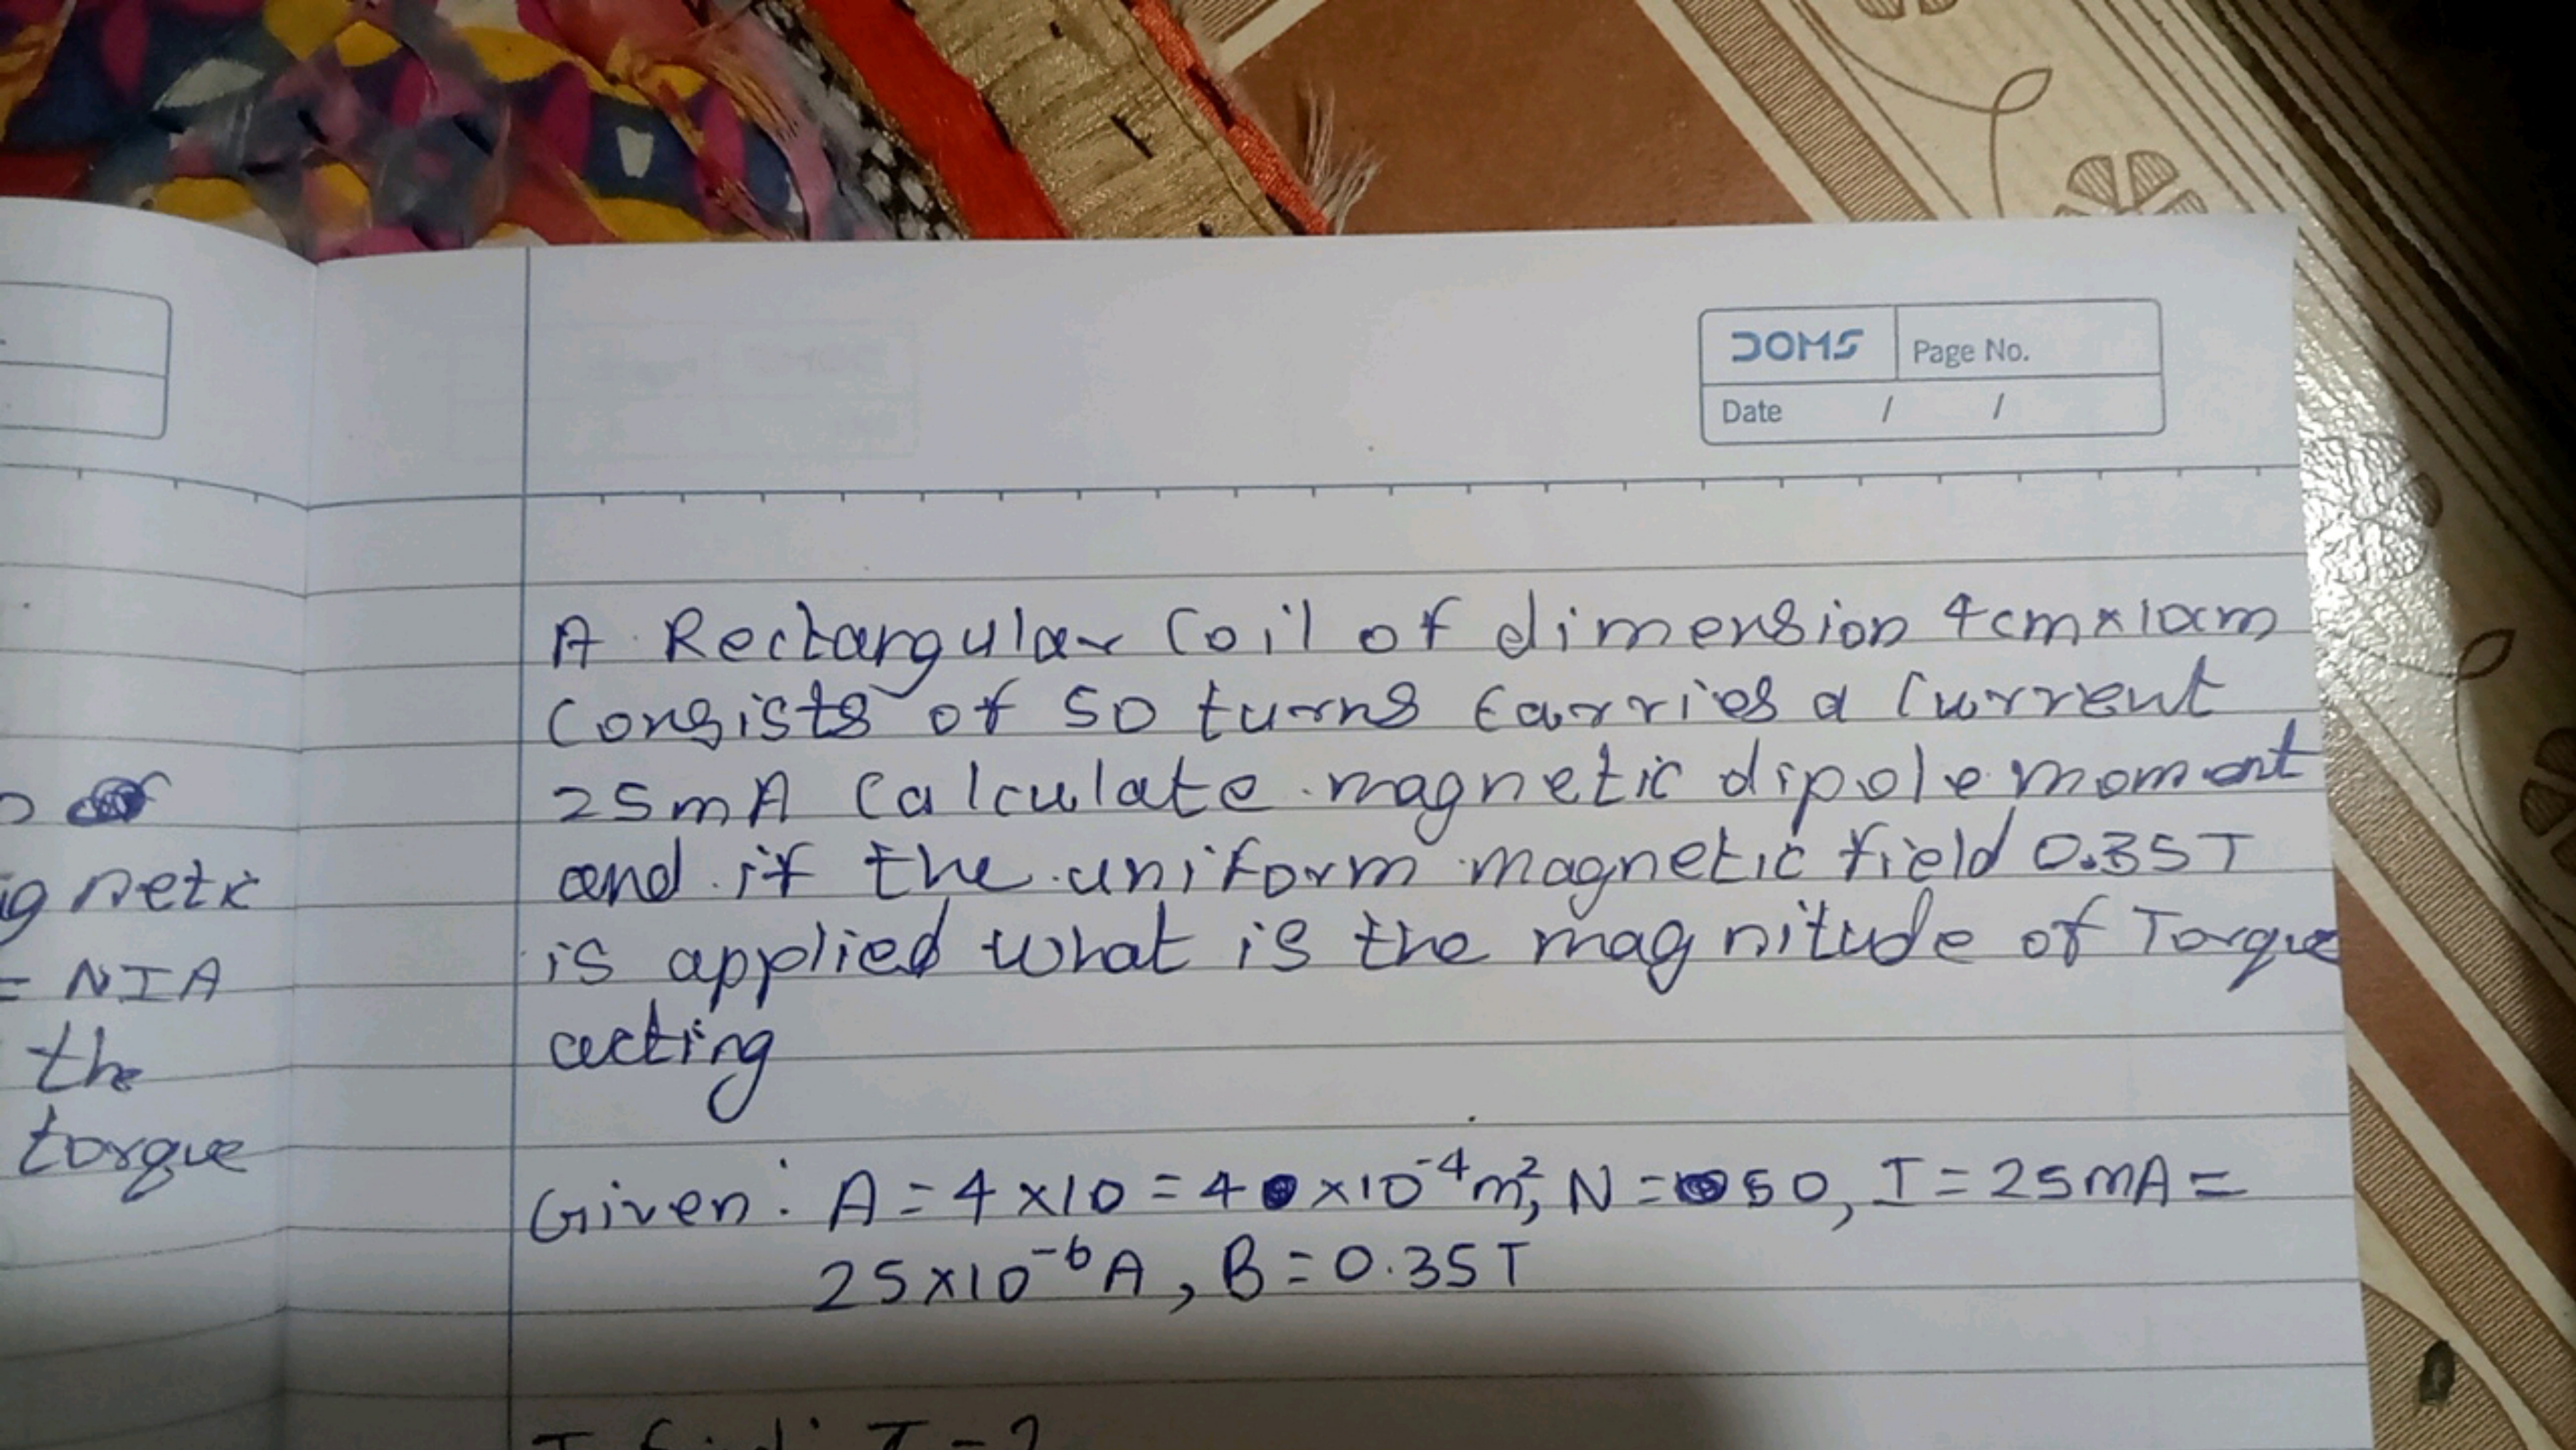 DOMS Page No.
Date / /
A Rectangular Coil of dimension 4cm×10cm
Consists of 50 turns Carries a Current
25mA Calculate magnetic dipole moment
and if the uniform magnetic field 0.35T
is applied what is the magnitude of Torque
acting
Given: A = 4×10 = 40×10⁻⁴m², N = 50, I = 25mA =
25×10⁻⁶A, B = 0.35T
netic
= NIA
the
torque